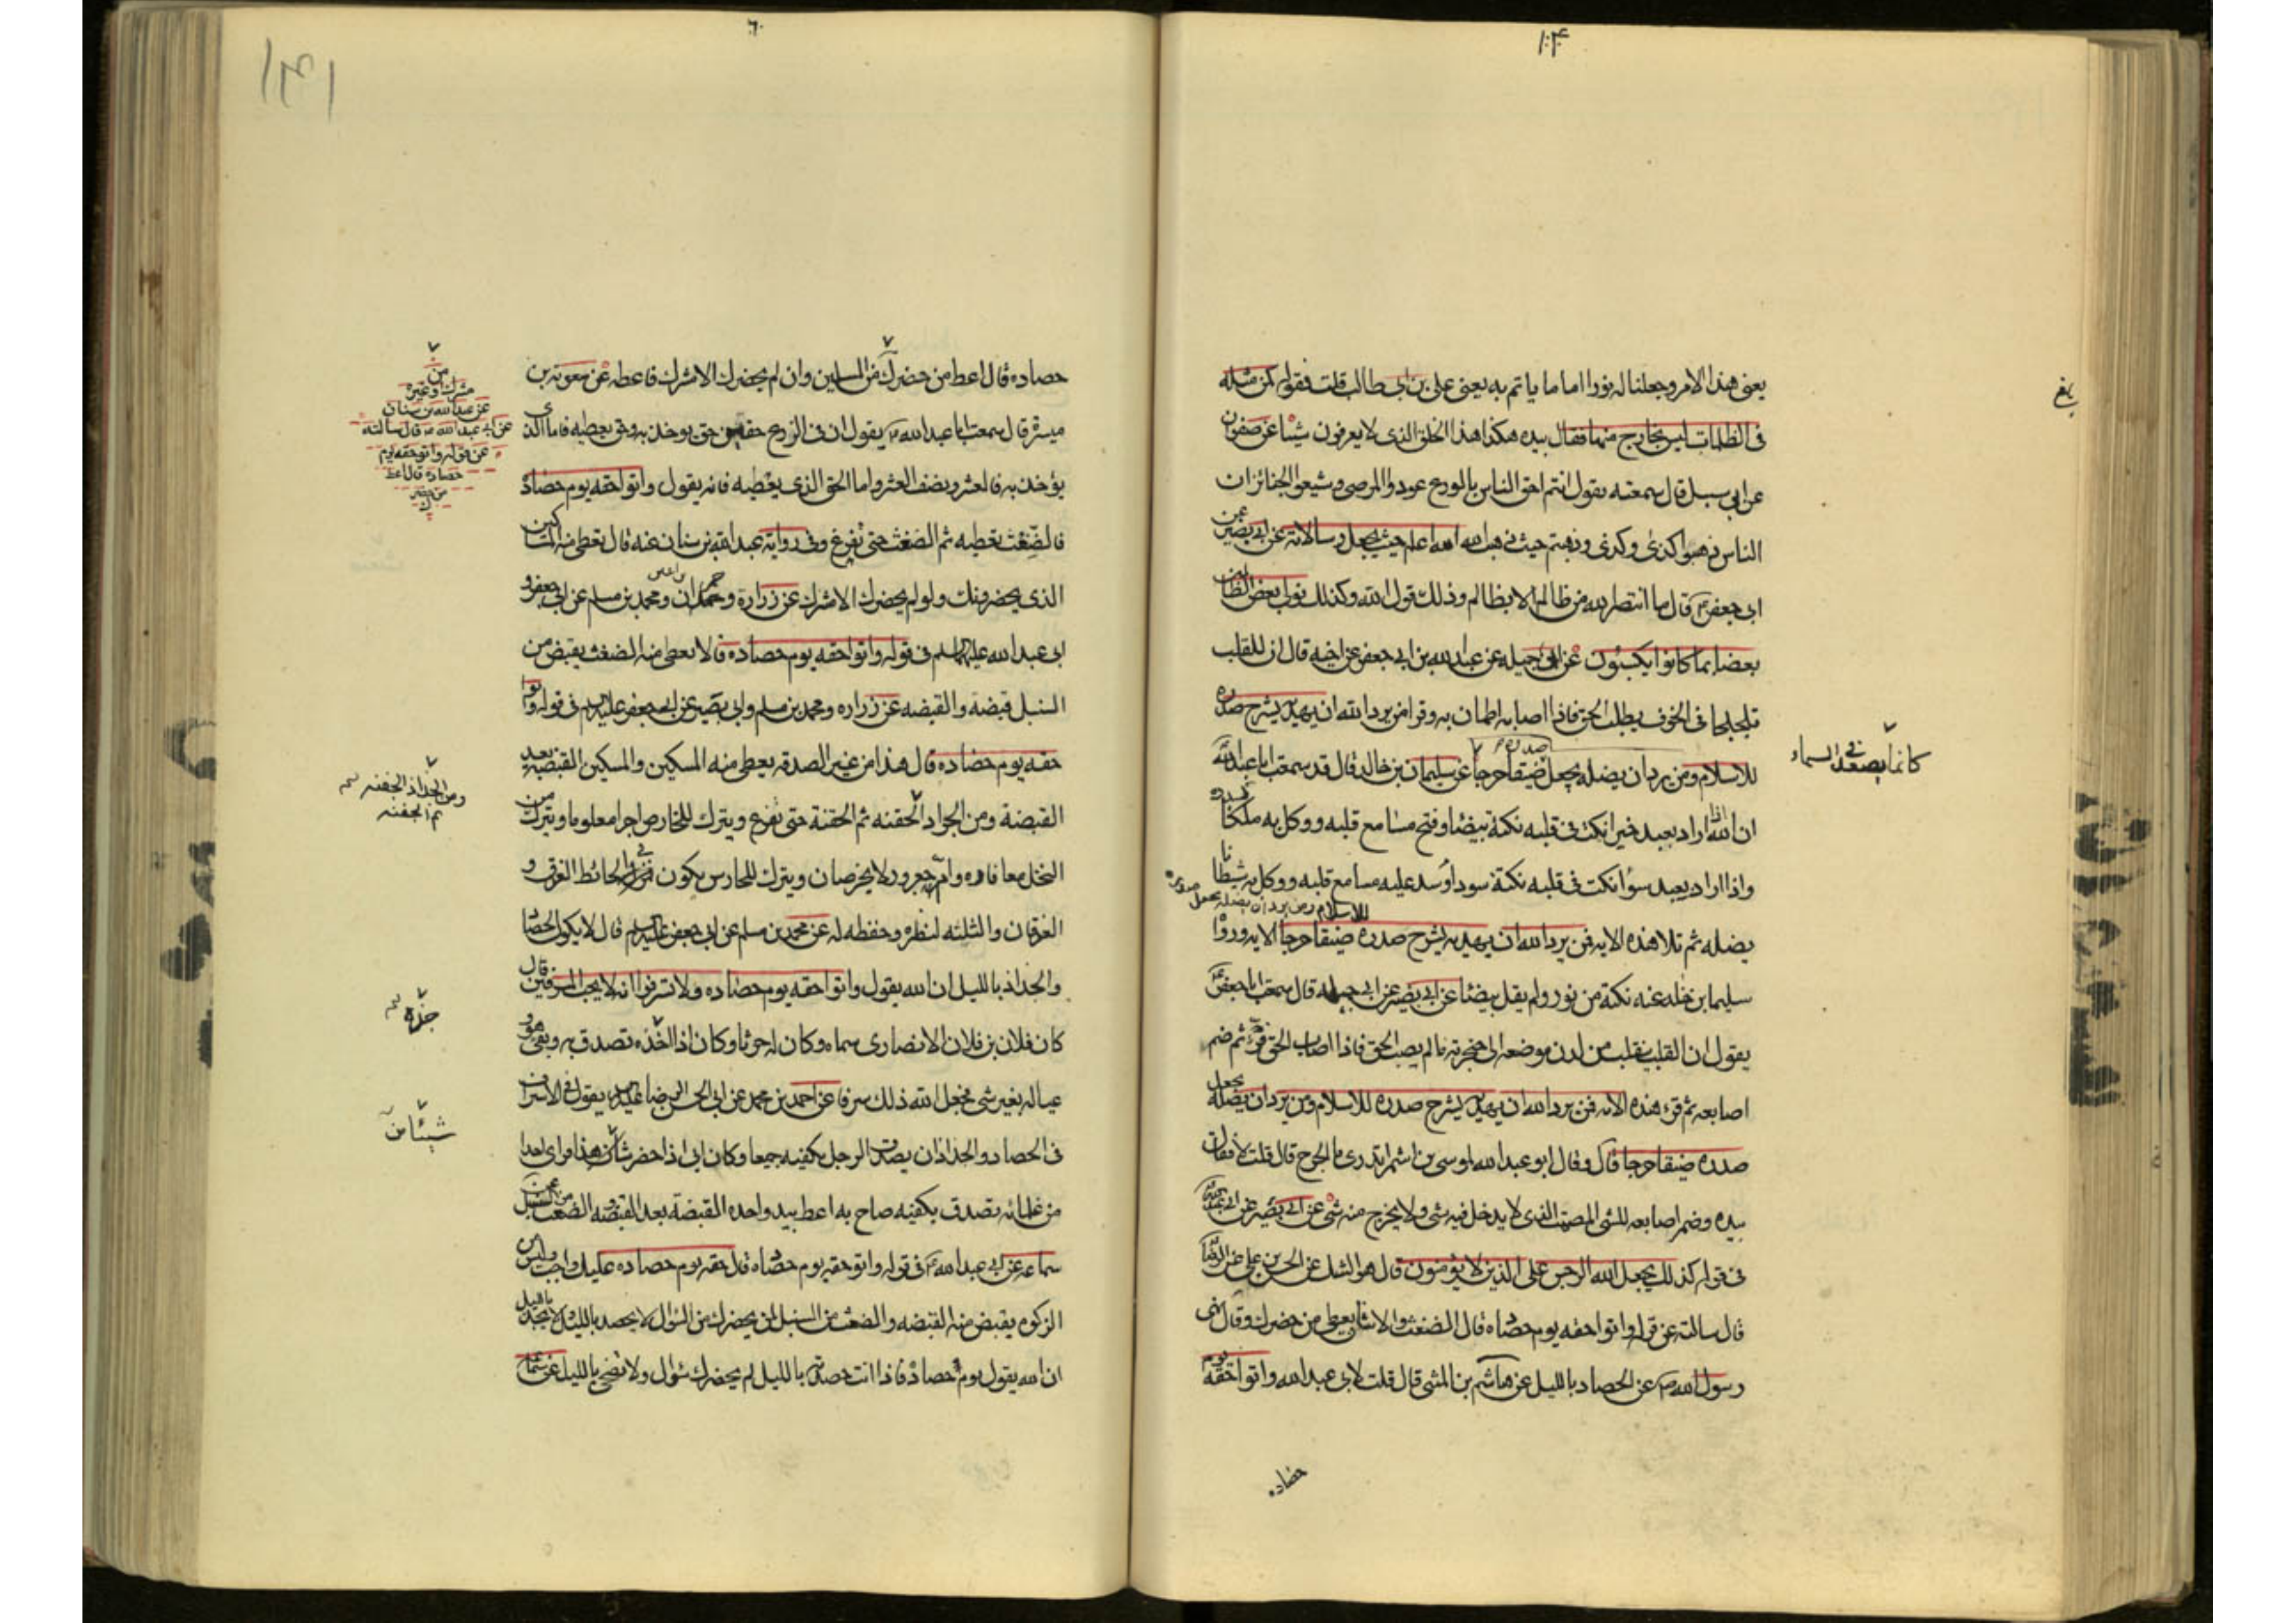 ۱۰۴
يعنى هذا الامر وجعلنا له نورا اماما ياتم به يعنى على بن ابى طالب قلت فقوله كمن مثله
فى الظلمات ليس بخارج منها فقال بيده هكذا هذا الخلق الذى لا يعرفون شيئا عن صفوان
عن ابى سبيل قال سمعته يقول انتم احق الناس بالورع عودوا المرضى وشيعوا الجنائز ان
الناس ذهبوا كذى وكذى وذهبتم حيث ذهب الله الله اعلم حيث يجعل رسالاته عن ابى بصير عن
ابى جعفر قال ما انتصر الله من ظالم الا بظالم وذلك قول الله وكذلك نولى بعض الظالمين
بعضا بما كانوا يكسبون عن ابى جميله عن عبد الله بن ابى جعفر عن اخيه قال ان للقلب
تلجلجا فى الخوف يطلب الحق فاذا اصابه اطمان به وقرا من يرد الله ان يهديه يشرح صدره
للاسلام ومن يرد ان يضله يجعل صدره ضيقا حرجا عن سليمان بن خالد قال قد سمعت ابا عبد الله
كانما يصعد فى السماء
ان الله اذا اراد بعبد خيرا نكت فى قلبه نكتة بيضا وفتح مسامع قلبه ووكل به ملكا يسدده
واذا اراد بعبد سوأ نكت فى قلبه نكتة سودا وسد عليه مسامع قلبه ووكل به شيطانا
للاسلام ومن يرد ان يضله يجعل صدره
يضله ثم تلا هذه الايه فمن يرد الله ان يهديه يشرح صدره ضيقا حرجا الايه ورواا
سليمان خلد عنه نكتة من نور ولم يقل بيضئا عن ابى بصير عن ابى جميله قال سمعت ابا جعفر
يقول ان القلب ينقلب من لدن موضعه الى حنجرته ما لم يصب الحق فاذا اصاب الحق قر ثم ضم
اصابعه ثم قرء هذه الايه فمن يرد الله ان يهديه يشرح صدره للاسلام ومن يرد ان يضله يجعل
صدره ضيقا حرجا قال وقال ابو عبد الله لموسى بن اشيم اتدرى ما الحرج قال قلت لا فقال
بيده وضم اصابعه للشى المصمت الذى لا يدخل فيه شى ولا يخرج منه شى عن ابى بصير عن ابى عبد الله
فى قوله كذلك يجعل الله الرجس على الذين لا يؤمنون قال هو الشك عن الحسن بن على عن الرضا
قال سالته عن قول واتوا حقه يوم حصاده قال الضغث والاثنان يعطى من حضرك وقال نهى
رسول الله عن الحصاد بالليل عن هاشم بن المثنى قال قلت لابى عبد الله واتوا حقه يوم
حصاده
حصاده قال اعط من حضرك من المسلمين وان لم يحضرك الا مشرك فاعطه عن معويه بن
من
مشرك وغيره
عن عبد الله بن سنان
عن ابى عبد الله قال سالته
عن قوله واتوا حقه يوم
حصاده قال اعط
من حضر
ك
ميسرة قال سمعت ابا عبد الله يقول ان فى الزرع حقين حق يوخذ به وحق يعطيه فاما الذى
يؤخذ به فالعشر ونصف العشر واما الحق الذى يعطيه فانه يقول واتوا حقه يوم حصاده
فالضغث تعطيه ثم الضغث حتى تفرغ وفى رواية عبد الله بن سنان عنه قال تعطى منه المساكين
الذى يحضرونك ولو لم يحضرك الا مشرك عن زرارة وحمران ومحمد بن مسلم عن ابى جعفر و
ابى عبد الله عليهما السلم فى قوله واتوا حقه يوم حصاده قالا تعطى منه الضغث يقبض من
السنبل قبضة والقبضه عن زراره ومحمد بن مسلم وابى بصير عن ابى جعفر عليه السلم فى قوله واتوا
حقه يوم حصاده قال هذا من غير الصدقه يعطى منه المسكين والمسكين القبضه بعد
القبضة ومن الجداد الحفنه ثم الحفنة حتى تفرغ ويترك للخارص اجرا معلوما ويترك من
ومن الجذاذ الجفنه
ثم الجفنه
النخل معافاره وام جعرور لا يخرصان ويترك للحارس يكون فى الحائط العذق و
العذقان والثلثه لنظره وحفظه له عن محمد بن مسلم عن ابى جعفر عليه السلم قال لا يكون الحصاد
والجذاذ بالليل ان الله يقول واتوا حقه يوم حصاده ولا تسرفوا انه لا يحب المسرفين قال
كان فلان بن فلان الانصارى سماه وكان له حرثا وكان اذا اخذه تصدق به وبقى هو و
جذه
عياله بغير شى فجعل الله ذلك سرفا عن احمد بن محمد عن ابى الحسن الرضا عليه السلم يقول فى الاسراف
شيئا من
فى الحصاد والجداد ان يصدق الرجل بكفيه جميعا وكان ابى اذا حضر هذا فراى احدا
من غلمانه تصدق بكفيه صاح به اعط بيد واحده القبضة بعد القبضه الضغث من السنبل عن
سماعه عن ابى عبد الله فى قوله واتوا حقه يوم حصاده قال حقه يوم حصاده عليك واجب وليس
الزكوه يقبض منه القبضه والضغث من السنبل لمن يحضرك من السؤال لا يحصد بالليل ولا يجذ بالليل
ان الله يقول يوم حصاده فاذا انت حصدته بالليل لم يحضرك سؤال ولا تضحى بالليل عن سماعه